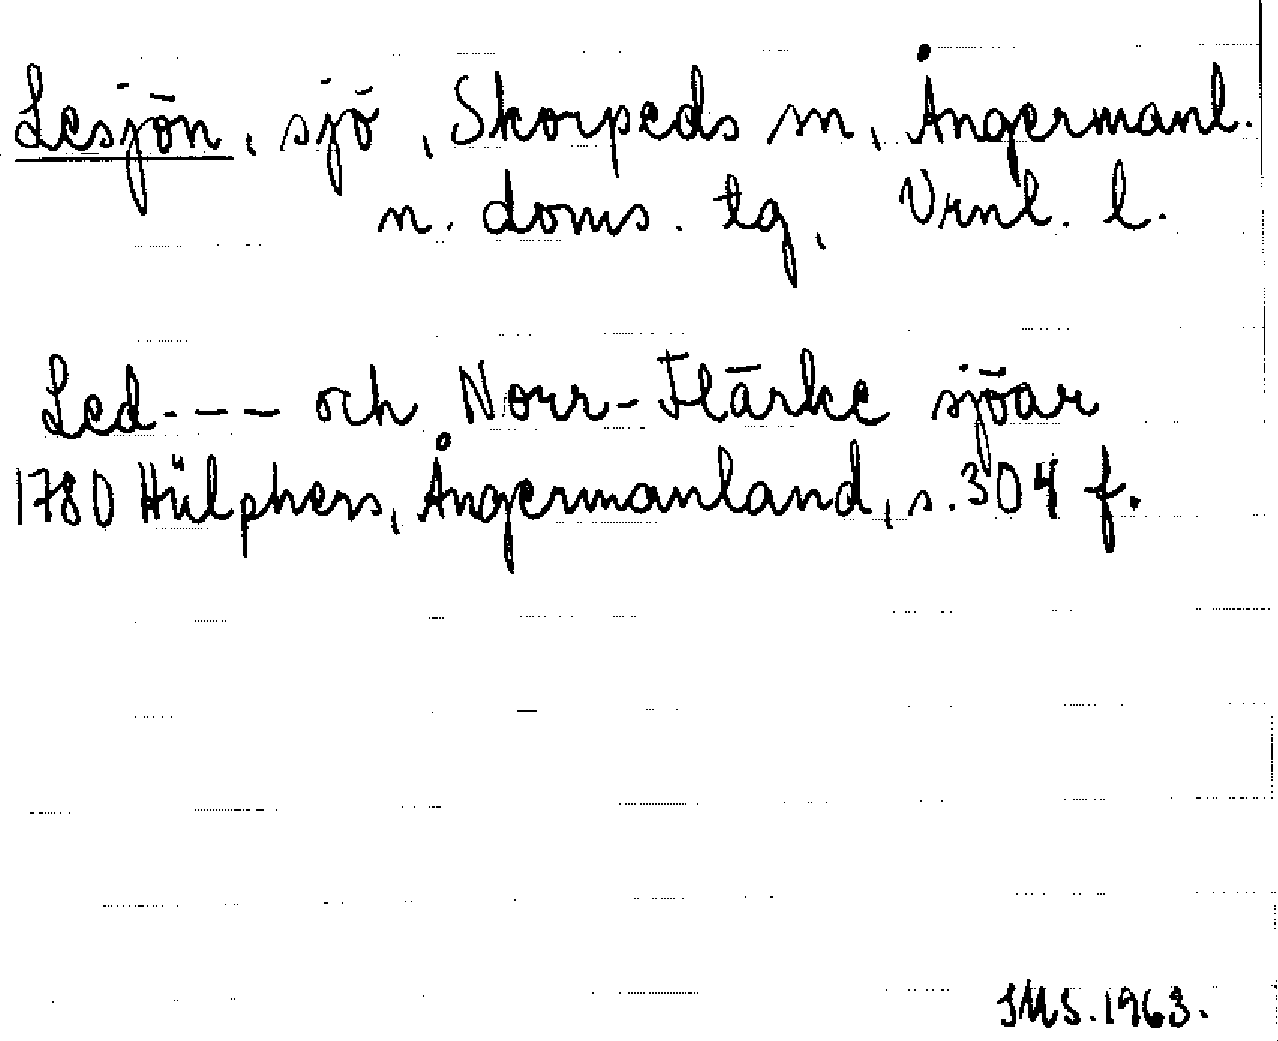 Lesjön, sjö, Skorpeds sn, Ångermanl.
n. doms. tg, Vrnl. l.
Led---- och Norr-Flärke sjöar
1780 Hülphers, Ångermanland, s. 304 f.
SMS. 1963.